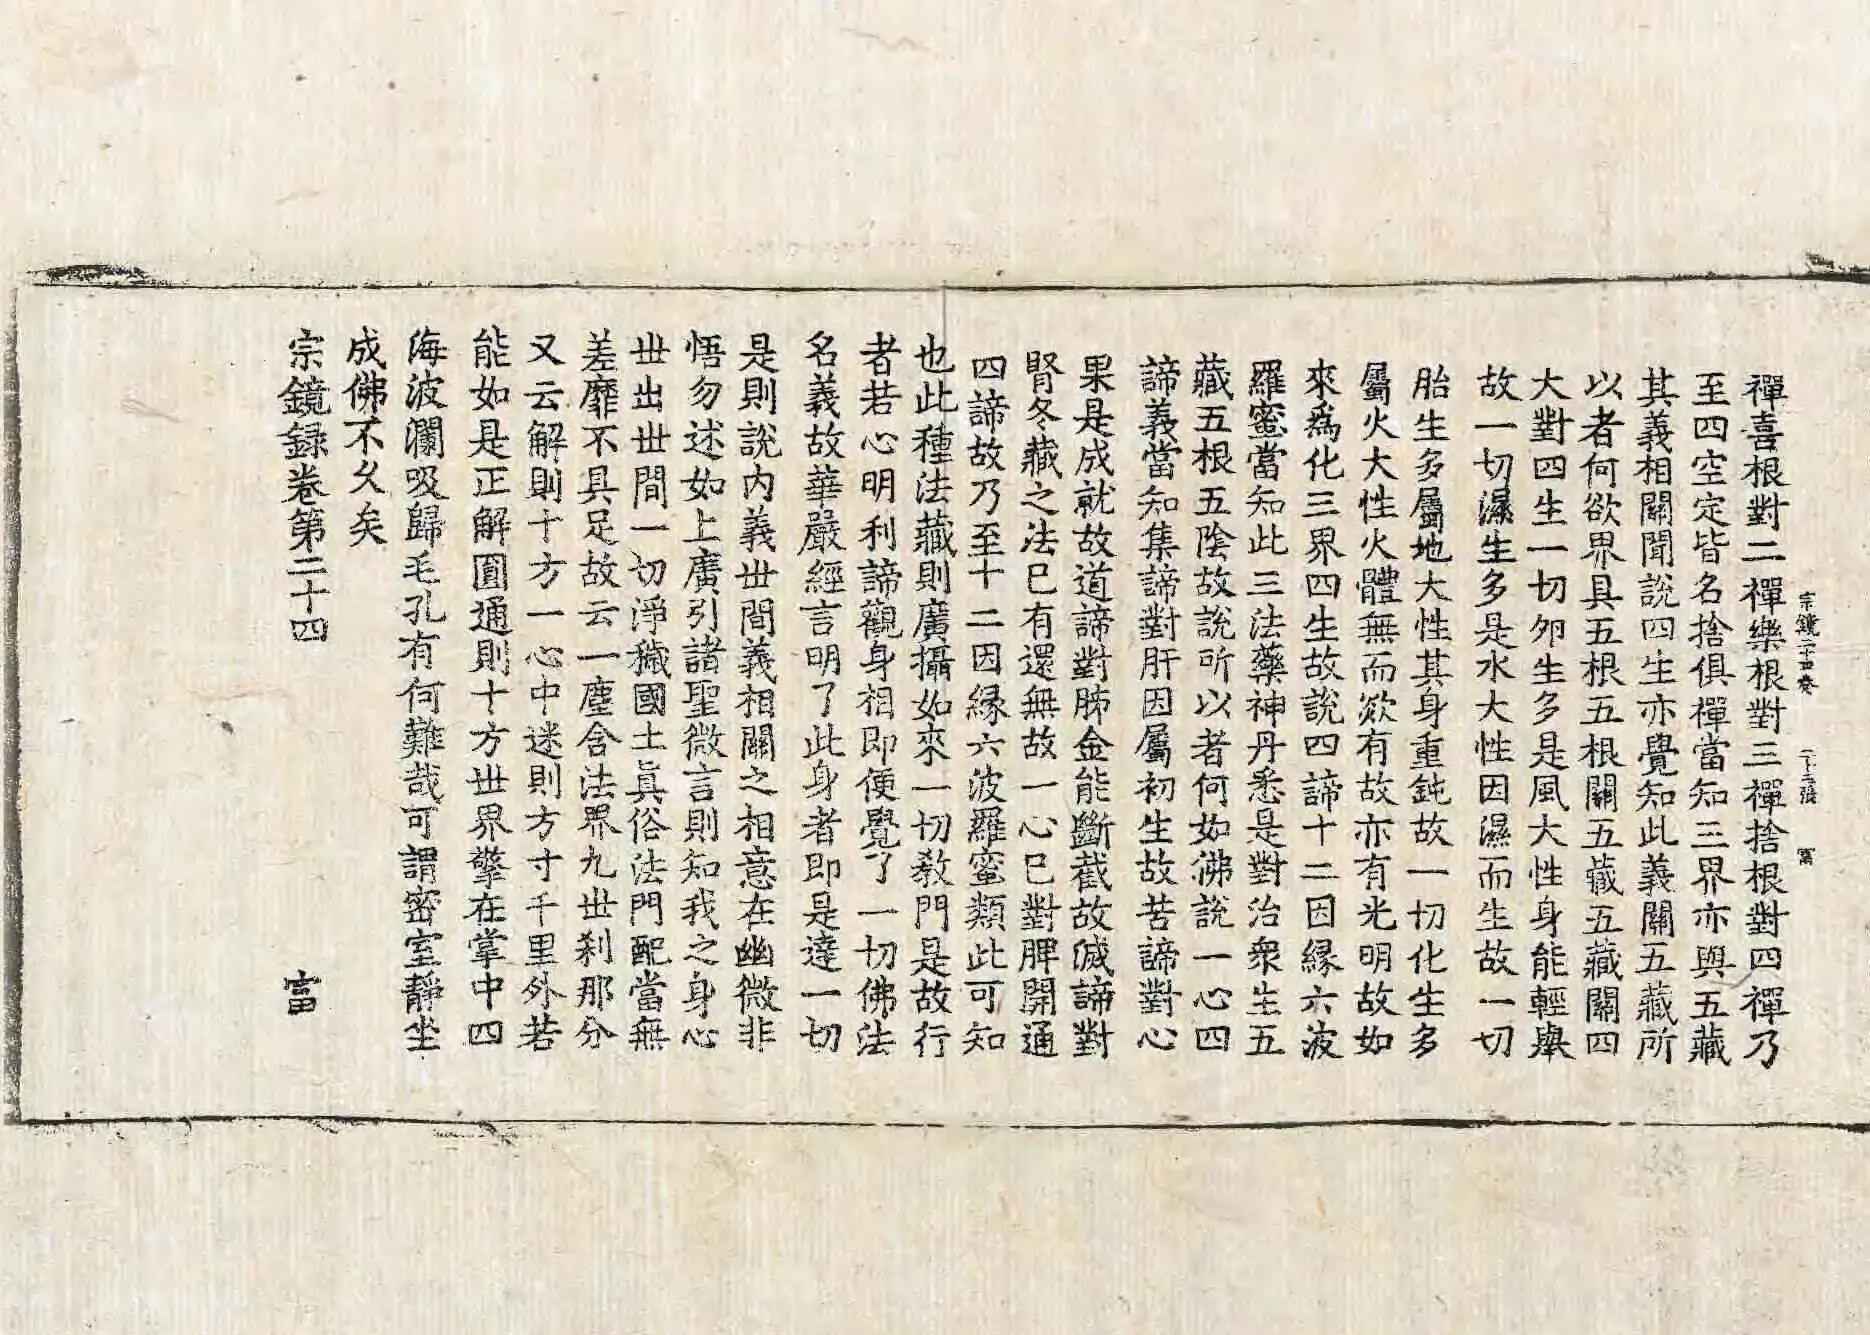 宗鏡二十四卷 二十三張 富
禪喜根對二禪樂根對三禪捨根對四禪乃
至四空定皆名捨俱禪當知三界亦與五藏
其義相關聞說四生亦覺知此義關五藏所
以者何欲界具五根五根關五藏五藏關四
大對四生一切卵生多是風大性身能輕舉
故一切濕生多是水大性因濕而生故一切
胎生多屬地大性其身重鈍故一切化生多
屬火大性火體無而欻有故亦有光明故如
來爲化三界四生故說四諦十二因緣六波
羅蜜當知此三法藥神丹悉是對治衆生五
藏五根五陰故說所以者何如佛說一心四
諦義當知集諦對肝因屬初生故苦諦對心
果是成就故道諦對肺金能斷截故滅諦對
腎冬藏之法已有還無故一心已對脾開通
四諦故乃至十二因緣六波羅蜜類此可知
也此種法藏則廣攝如來一切教門是故行
者若心明利諦觀身相即便覺了一切佛法
名義故華嚴經言明了此身者即是達一切
是則說內義世間義相關之相意在幽微非
悟勿述如上廣引諸聖微言則知我之身心
世出世間一切淨穢國土眞俗法門配當無
差靡不具足故云一塵含法界九世刹那分
又云解則十方一心中迷則方寸千里外若
能如是正解圓通則十方世界擎在掌中四
海波瀾吸歸毛孔有何難哉可謂密室靜坐
成佛不久矣
宗鏡録卷第二十四 富